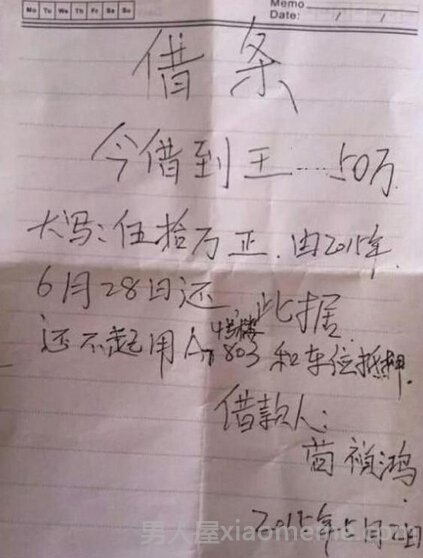 Mo Tu We Th Fr Sa Su
Memo
Date: / /
借条
今借到王…50万
大写:伍拾万正.由2015年.
6月28日还,此据
4号楼
还不起用 803和车位抵押.
借款人:
祯鸿.
2015年5月2日
男人屋xiaomeme.com